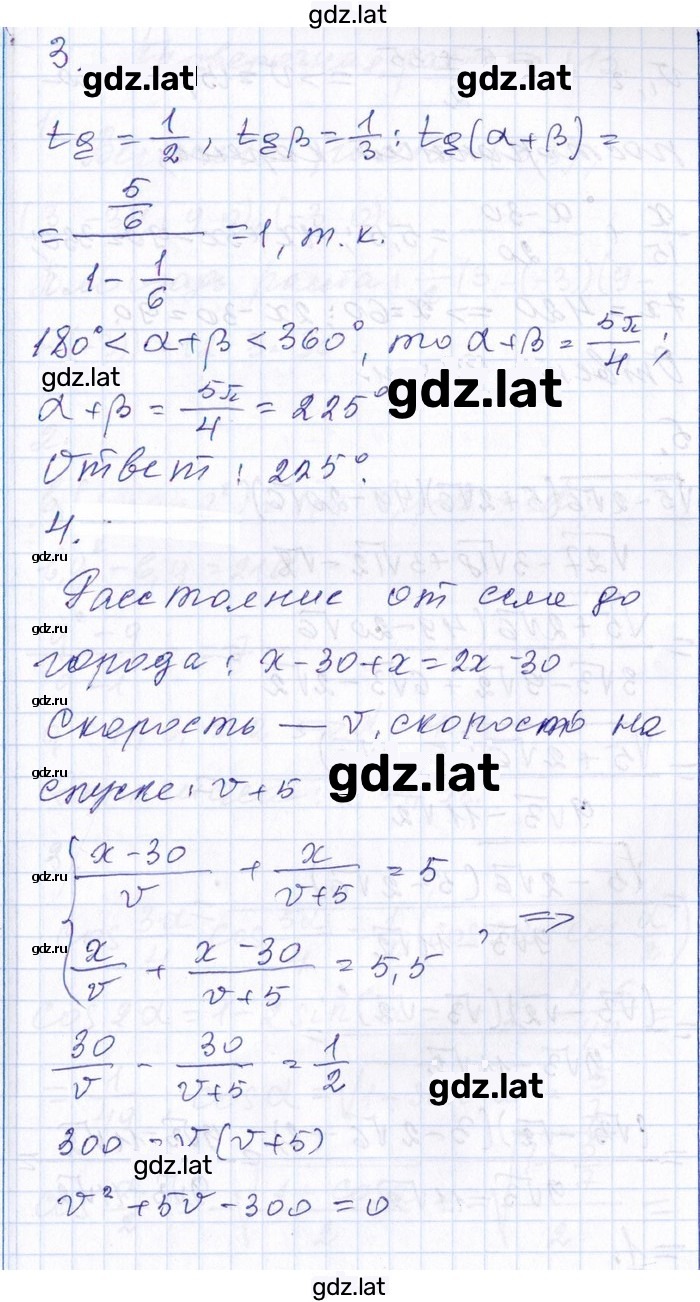 gdz.lat
3.
gdz.lat gdz.lat
tg = 1/2, tgβ = 1/3; tg(α+β) =
= (5/6)/(1 - 1/6) = 1, т.к.
180° < α+β < 360°, то α+β = 5π/4;
gdz.lat
α+β = 5π/4 = 225° gdz.lat
Ответ: 225°.
4.
gdz.lat
Расстояние от села до
gdz.lat
города: x-30+x=2x-30
gdz.lat
Скорость — v, скорость на
gdz.lat
спуске: v+5 gdz.lat
{ (x-30)/v + x/(v+5) = 5
gdz.lat
x/v + (x-30)/(v+5) = 5,5 , ⇒
gdz.lat
30/v - 30/(v+5) = 1/2
gdz.lat
300 - v(v+5)
gdz.lat
v² + 5v - 300 = 0
gdz.lat